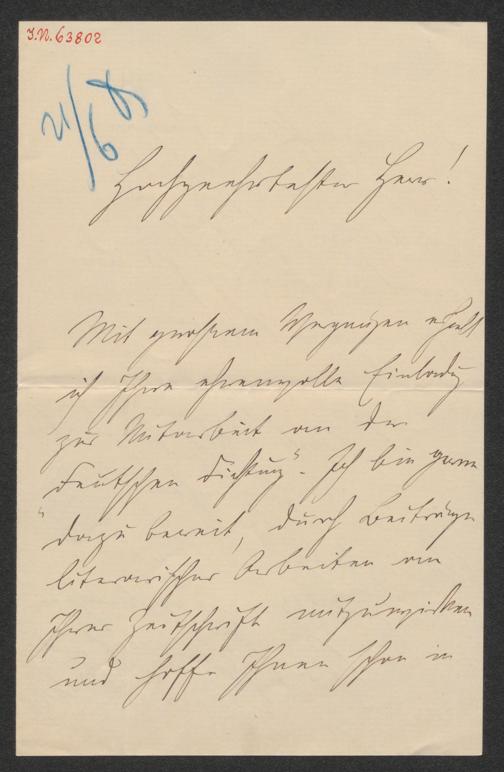 I.N. 63802
21/6 8
Hochgeehrtester Herr!
Mit großem Vergnügen erhielt
ich Ihre ehrenvolle Einladung
zur Mitarbeit an der
„Deutschen Dichtung“. Ich bin gerne
dazu bereit, durch Beiträge
literarischer Arbeiten an
Ihrer Zeitschrift mitzuwirken
und hoffe Ihnen schon in